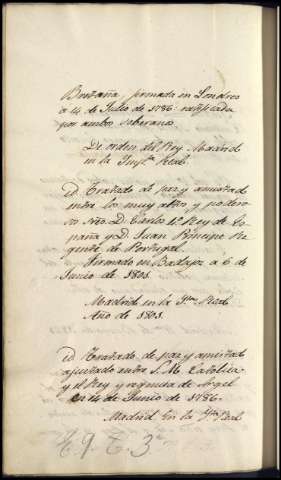 Bretaña, firmada en Londres
a 14 de Julio de 1786: ratificada
por ambos soberanos.
De orden del Rey. Madrid
en la Impta. Real.
id Tratado de paz y amistad
entre los muy altos y podero-
sos Sres. D. Carlos IV Rey de Es-
paña y D. Juan Principe Re-
gente de Portugal.
Firmado en Badajoz a 6 de
Junio de 1801.
Madrid en la Ymta. Real
Año de 1801.
id Tratado de paz y amistad
ajustado entre S. M. Catolica
y el Rey y regencia de Argel
en 14 de Junio de 1786.
Madrid en la Yta. Real